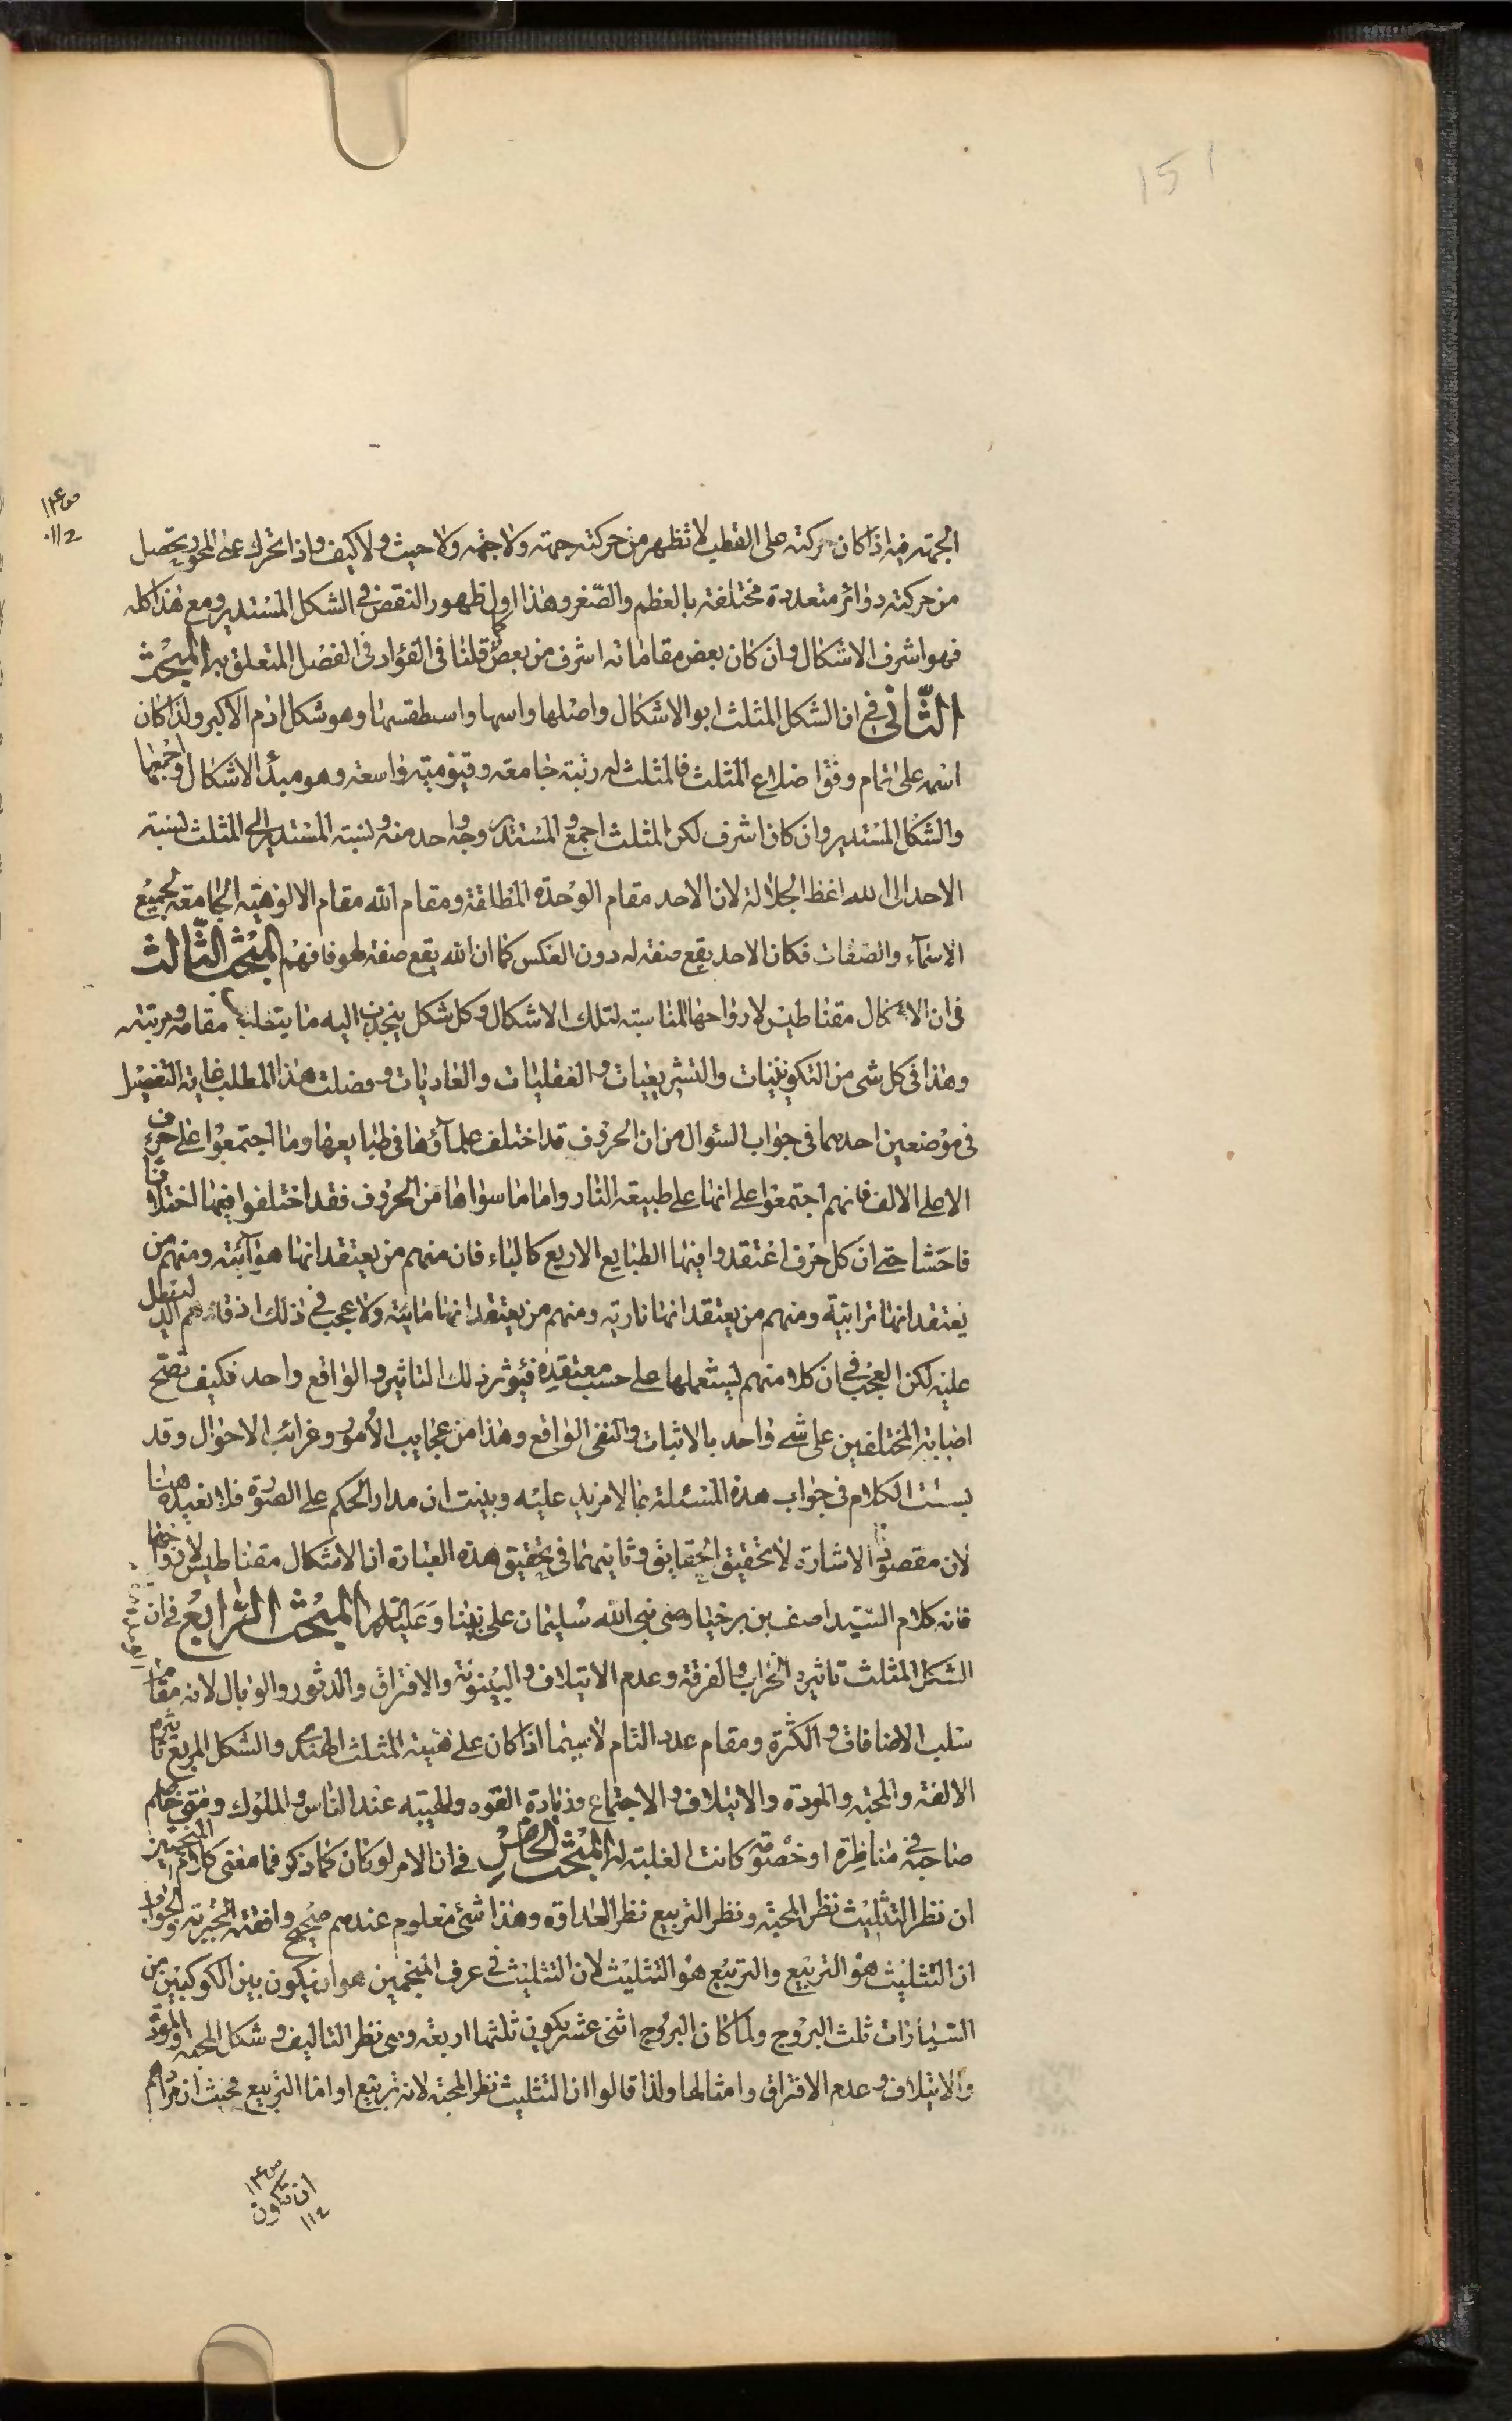 151
ص ١٣٤
١١٢
الجهة فيه اذا كان حركته على القطب لا تظهر من حركته جهة ولا جهة ولا حيث ولا كيف واذا تحرك على المحور يحصل
من حركته دوائر متعددة مختلفة بالعظم والصّغر وهذا اول ظهور النقض في الشكل المستدير ومع هذا كله
فهو اشرف الاشكال وان كان بعض مقاماته اشرف من بعض كما قلنا في الفؤاد في الفصل المتعلق به المبحث
الثّاني في ان الشكل المثلث ابو الاشكال واصلها واسها واسطقسها وهو شكل ادم الاكبر ولذا كان
اسمه على تمام وفق اضلاع المثلث فالمثلث له رتبة جامعة وقيّومية واسعة وهو مبدأ الاشكال واجمعها
والشكل المستدير وان كان اشرف لكن المثلث اجمع والمستدير وجه واحد منه ولنسبة المستدير الى المثلث لنسبة
الاحد الى الله اعظ الجلالة لان الاحد مقام الوحدة المطلقة ومقام الله مقام الالوهية الجامعة لجميع
الاسمآء والصفات فكان الاحد يقع صفة له دون العكس كما ان الله يقع صفة لهو فافهم المبحث الثّالث
في ان الاشكال مقناطيس لارواحها المناسبة لتلك الاشكال وكل شكل ينجذب اليه ما يتخلب مقامه ومرتبته
وهذا في كل شى من التكوينيات والتشريعيات والعقليات والعاديات وفصلت هذا المطلب غاية التفصيل
في موضعين احدهما في جواب السئوال من ان الحروف قد اختلف علمآؤها في طبايعها وما اجتمعوا على حرف
الا على الالف فانهم اجتمعوا على انها على طبيعة النار واما ما سواها من الحروف فقد اختلفوا فيها اختلافا
فاحشا حتى ان كل حرف اعتقدوا فيها الطبايع الاربع كالباء فان منهم من يعتقد انها هوآئية ومنهم من
يعتقد انها ترابية ومنهم من يعتقد انها نارية ومنهم من يعتقد انها مائية ولا عجب في ذلك اذ قادهم الدليل
عليه لكن العجب في ان كلا منهم يستعملها على حسب معتقده فيؤثر ذلك التاثير والواقع واحد فكيف تصح
اصابة المختلفين على شى واحد بالاثبات والنفى الواقع وهذا من عجايب الأمور وغرائب الاحوال وقد
بسطت الكلام في جواب هذه المسئلة بما لا مزيد عليه وبينت ان مدار الحكم على الصورة فلا نعيده هنا
لان مقصودنا الاشارة لا تحقيق الحقايق وثانيهما في تحقيق هذه العبارة ان الاشكال مقناطيس لارواحها
فانه كلام السّيد اصف بن برخيا وصى نبى الله سليمان على نبينا وعليه السلام المبحث الرّابع في ان
الشكل المثلث تاثيره الخراب والفرقة وعدم الايتلاف والبينونة والافتراق والدثور والوبال لانه مقام
سلب الاضافات والكثرة ومقام عدد التام لا سيما اذا كان على هيئة المثلث الهندى والشكل المربع تاثيره
الالفة والمحبة والمودة والايتلاف والاجتماع وزيادة القوه والهيبة عند الناس والملوك ومتى خاصم
صاحبه في مناظرة او خصومة كانت الغلبة له المبحث الخامس في ان الامر لو كان كما ذكر فما معنى كلام المنجمين
ان نظر التثليث نظر المحبة ونظر التربيع نظر العداوة وهذا شئ معلوم عندهم صحيح وافقته التجربة والجواب
ان التثليث هو التربيع والتربيع هو التثليث لان التثليث في عرف المنجمين هو ان يكون بين الكوكبين من
السّيارات ثلث البروج ولما كان البروج اثنى عشر يكون ثلثها اربعة وهى نظر التاليف وشكل المحبة والمودّة
والايتلاف وعدم الافتراق وامثالها ولذا قالوا ان التثليث نظر المحبة لانه تربيع او اما التربيع فحيث ان مرادهم
ص ١٣٤
ان تكون
١١٢